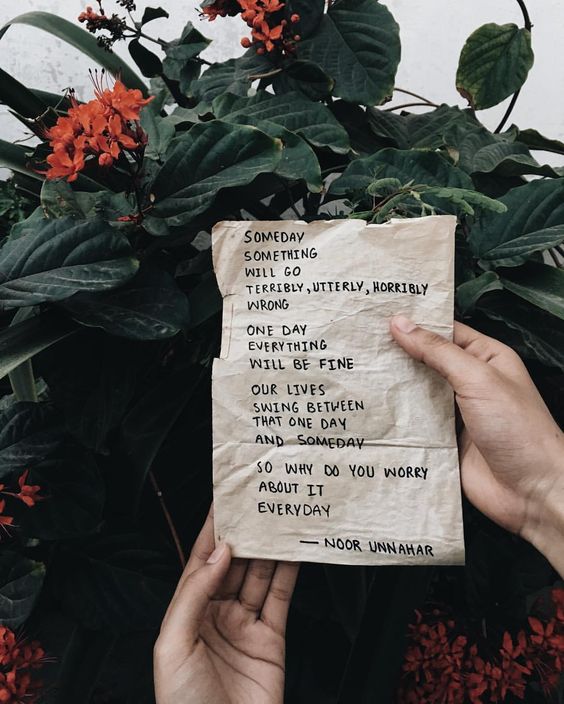 SOMEDAY
SOMETHING
WILL GO
TERRIBLY, UTTERLY, HORRIBLY
WRONG
ONE DAY
EVERYTHING
WILL BE FINE
OUR LIVES
SWING BETWEEN
THAT ONE DAY
AND SOMEDAY
SO WHY DO YOU WORRY
ABOUT IT
EVERYDAY
— NOOR UNNAHAR